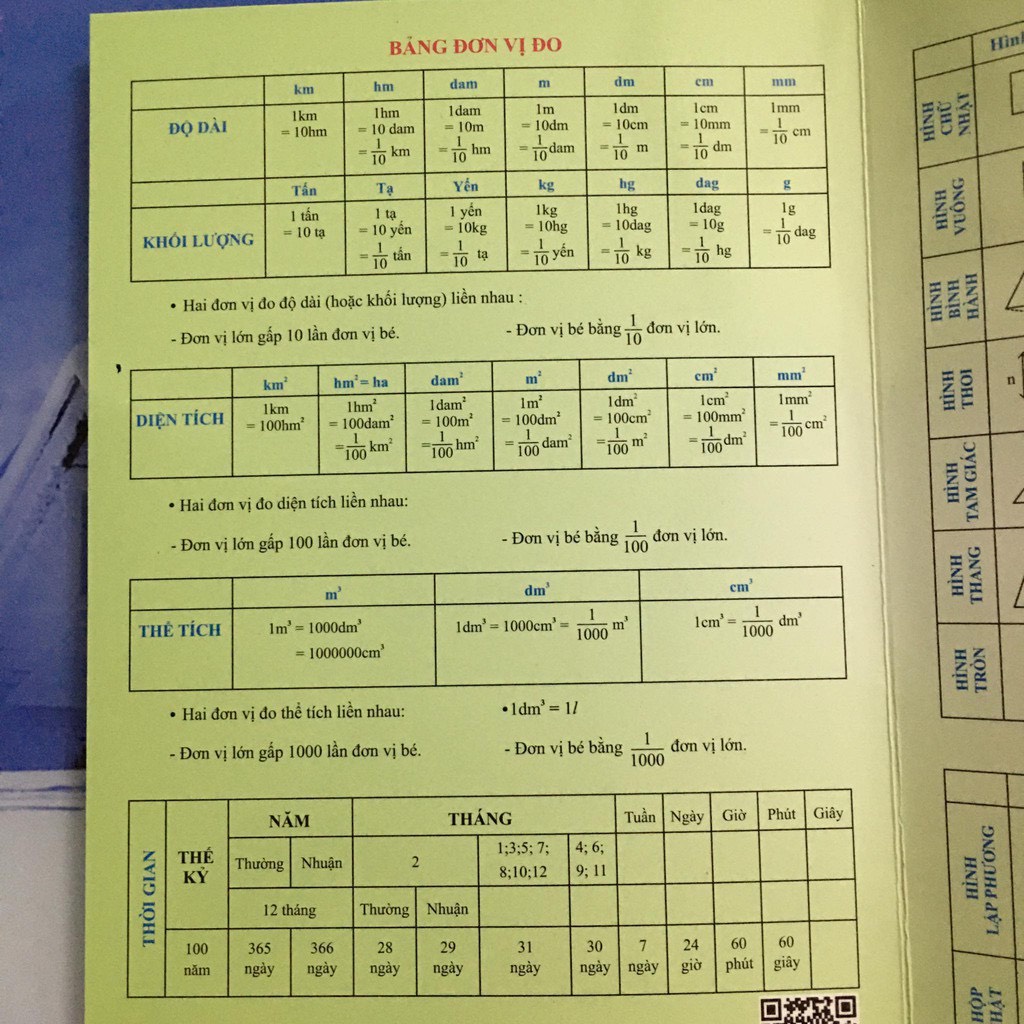 BẢNG ĐƠN VỊ ĐO
km hm dam m dm cm mm
ĐỘ DÀI
1km = 10hm
1hm = 10 dam = 1/10 km
1dam = 10m = 1/10 hm
1m = 10dm = 1/10 dam
1dm = 10cm = 1/10 m
1cm = 10mm = 1/10 dm
1mm = 1/10 cm
Tấn Tạ Yến kg hg dag g
KHỐI LƯỢNG
1 tấn = 10 tạ
1 tạ = 10 yến = 1/10 tấn
1 yến = 10kg = 1/10 tạ
1kg = 10hg = 1/10 yến
1hg = 10dag = 1/10 kg
1dag = 10g = 1/10 hg
1g = 1/10 dag
• Hai đơn vị đo độ dài (hoặc khối lượng) liền nhau :
- Đơn vị lớn gấp 10 lần đơn vị bé. - Đơn vị bé bằng 1/10 đơn vị lớn.
km² hm² = ha dam² m² dm² cm² mm²
DIỆN TÍCH
1km = 100hm²
1hm² = 100dam² = 1/100 km²
1dam² = 100m² = 1/100 hm²
1m² = 100dm² = 1/100 dam²
1dm² = 100cm² = 1/100 m²
1cm² = 100mm² = 1/100 dm²
1mm² = 1/100 cm²
• Hai đơn vị đo diện tích liền nhau:
- Đơn vị lớn gấp 100 lần đơn vị bé. - Đơn vị bé bằng 1/100 đơn vị lớn.
m³ dm³ cm³
THỂ TÍCH
1m³ = 1000dm³
= 1000000cm³
1dm³ = 1000cm³ = 1/1000 m³
1cm³ = 1/1000 dm³
• Hai đơn vị đo thể tích liền nhau: •1dm³ = 1l
- Đơn vị lớn gấp 1000 lần đơn vị bé. - Đơn vị bé bằng 1/1000 đơn vị lớn.
THỜI GIAN
THẾ KỶ NĂM THÁNG Tuần Ngày Giờ Phút Giây
Thường Nhuận 2 1;3;5; 7; 8;10;12 4; 6; 9; 11
12 tháng Thường Nhuận
100 năm 365 ngày 366 ngày 28 ngày 29 ngày 31 ngày 30 ngày 7 ngày 24 giờ 60 phút 60 giây
Hình
HÌNH CHỮ NHẬT
HÌNH VUÔNG
HÌNH BÌNH HÀNH
HÌNH THOI
n
HÌNH TAM GIÁC
HÌNH THANG
HÌNH TRÒN
HÌNH LẬP PHƯƠNG
HỘP